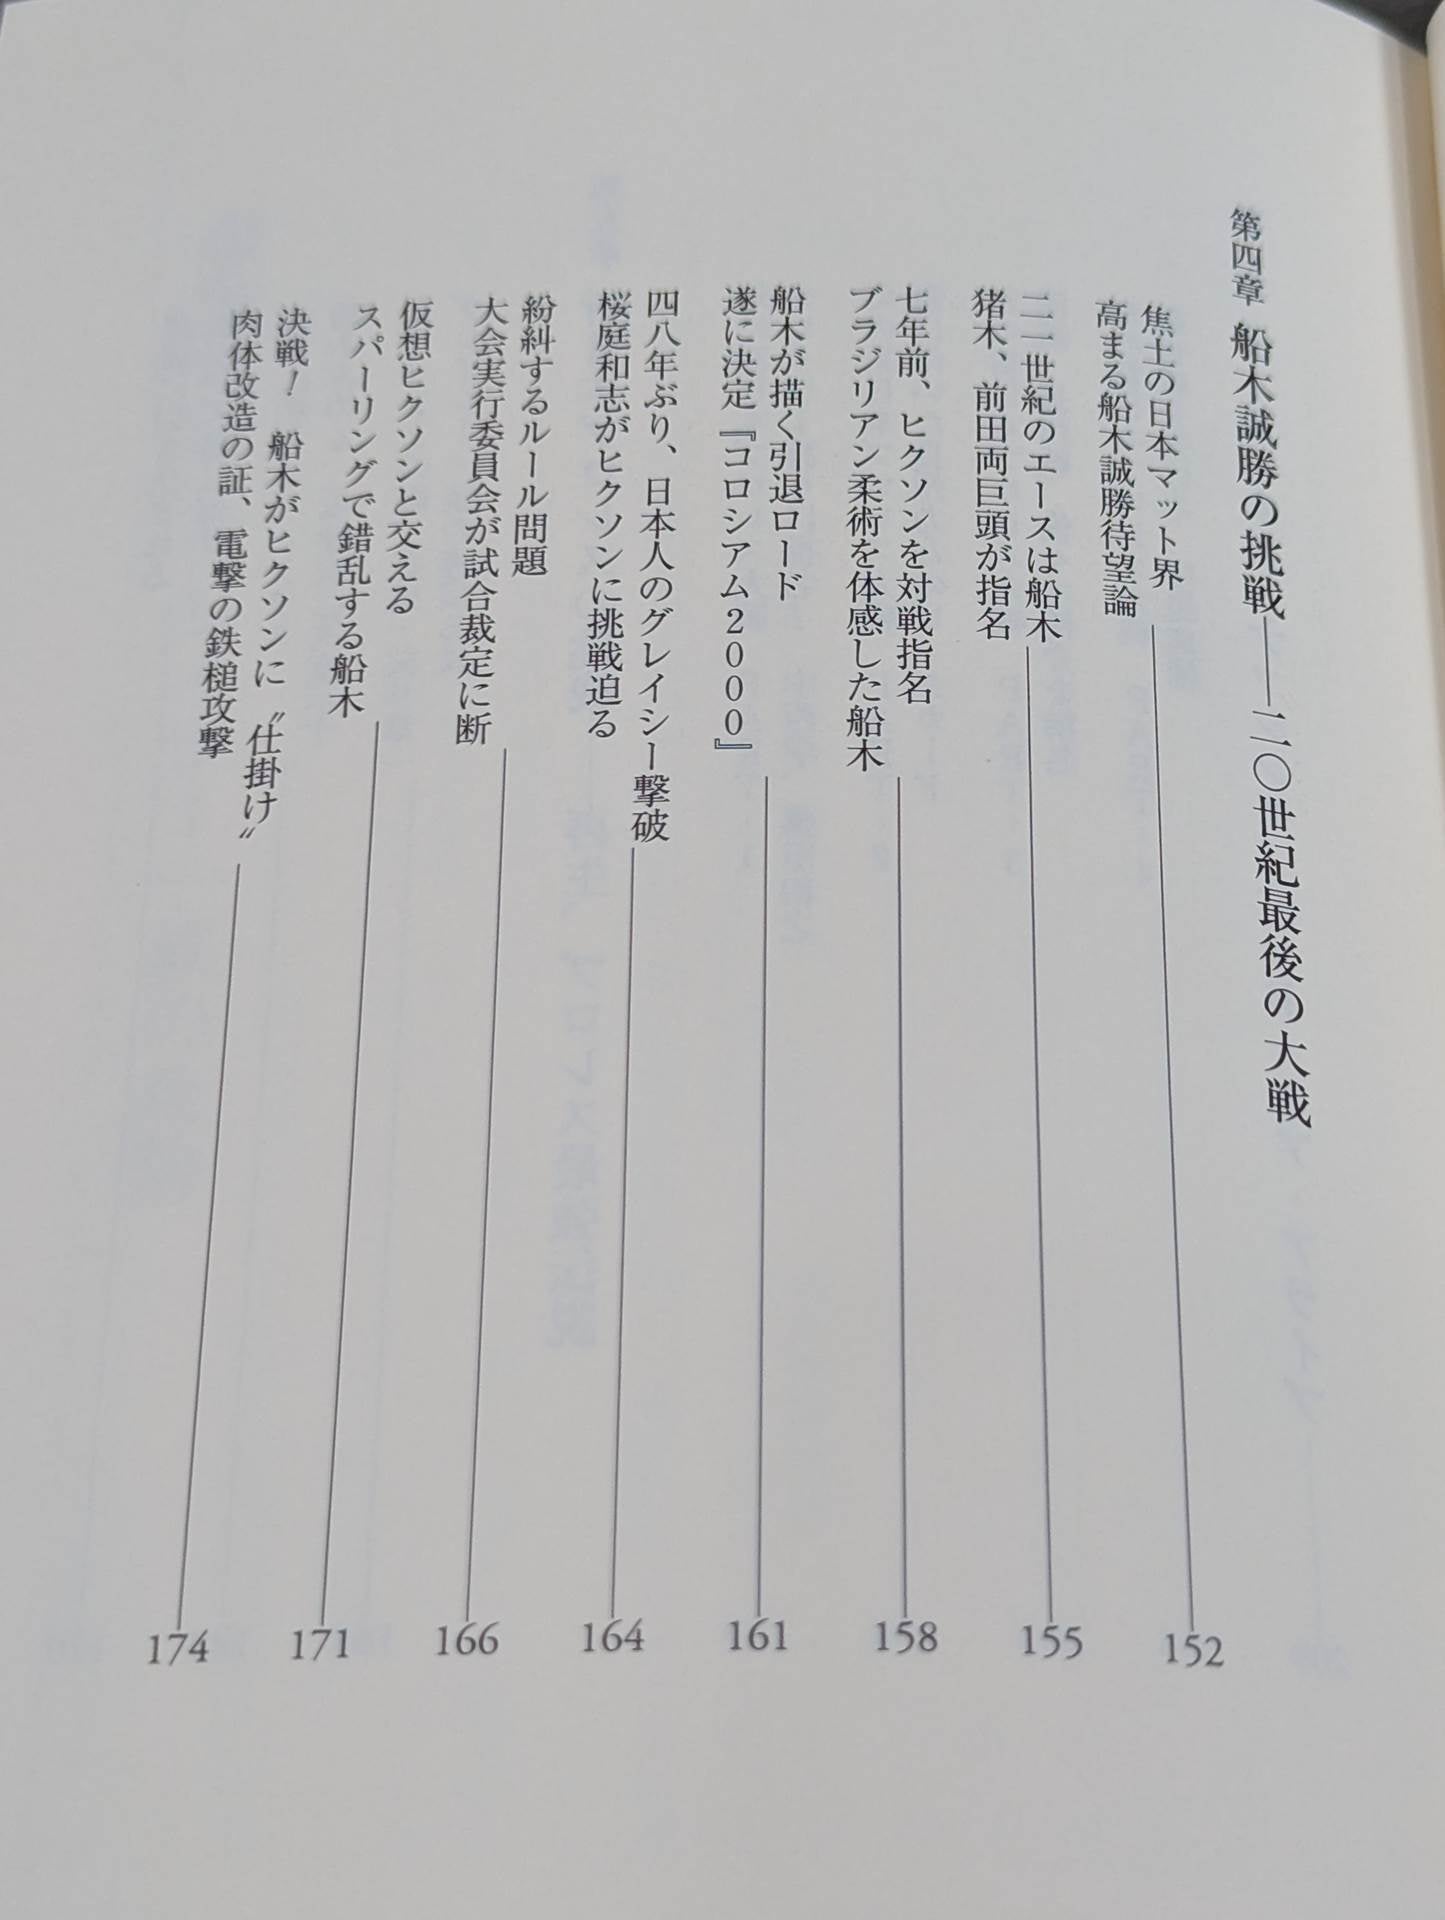 第四章 船木誠勝の挑戦――二〇世紀最後の大戦
焦土の日本マット界
高まる船木誠勝待望論
152
二一世紀のエースは船木
猪木、前田両巨頭が指名
155
七年前、ヒクソンを対戦指名
ブラジリアン柔術を体感した船木
158
船木が描く引退ロード
遂に決定『コロシアム2000』
161
四八年ぶり、日本人のグレイシー撃破
桜庭和志がヒクソンに挑戦迫る
164
紛糾するルール問題
大会実行委員会が試合裁定に断
166
仮想ヒクソンと交える
スパーリングで錯乱する船木
171
決戦! 船木がヒクソンに〝仕掛け〟
肉体改造の証、電撃の鉄槌攻撃
174